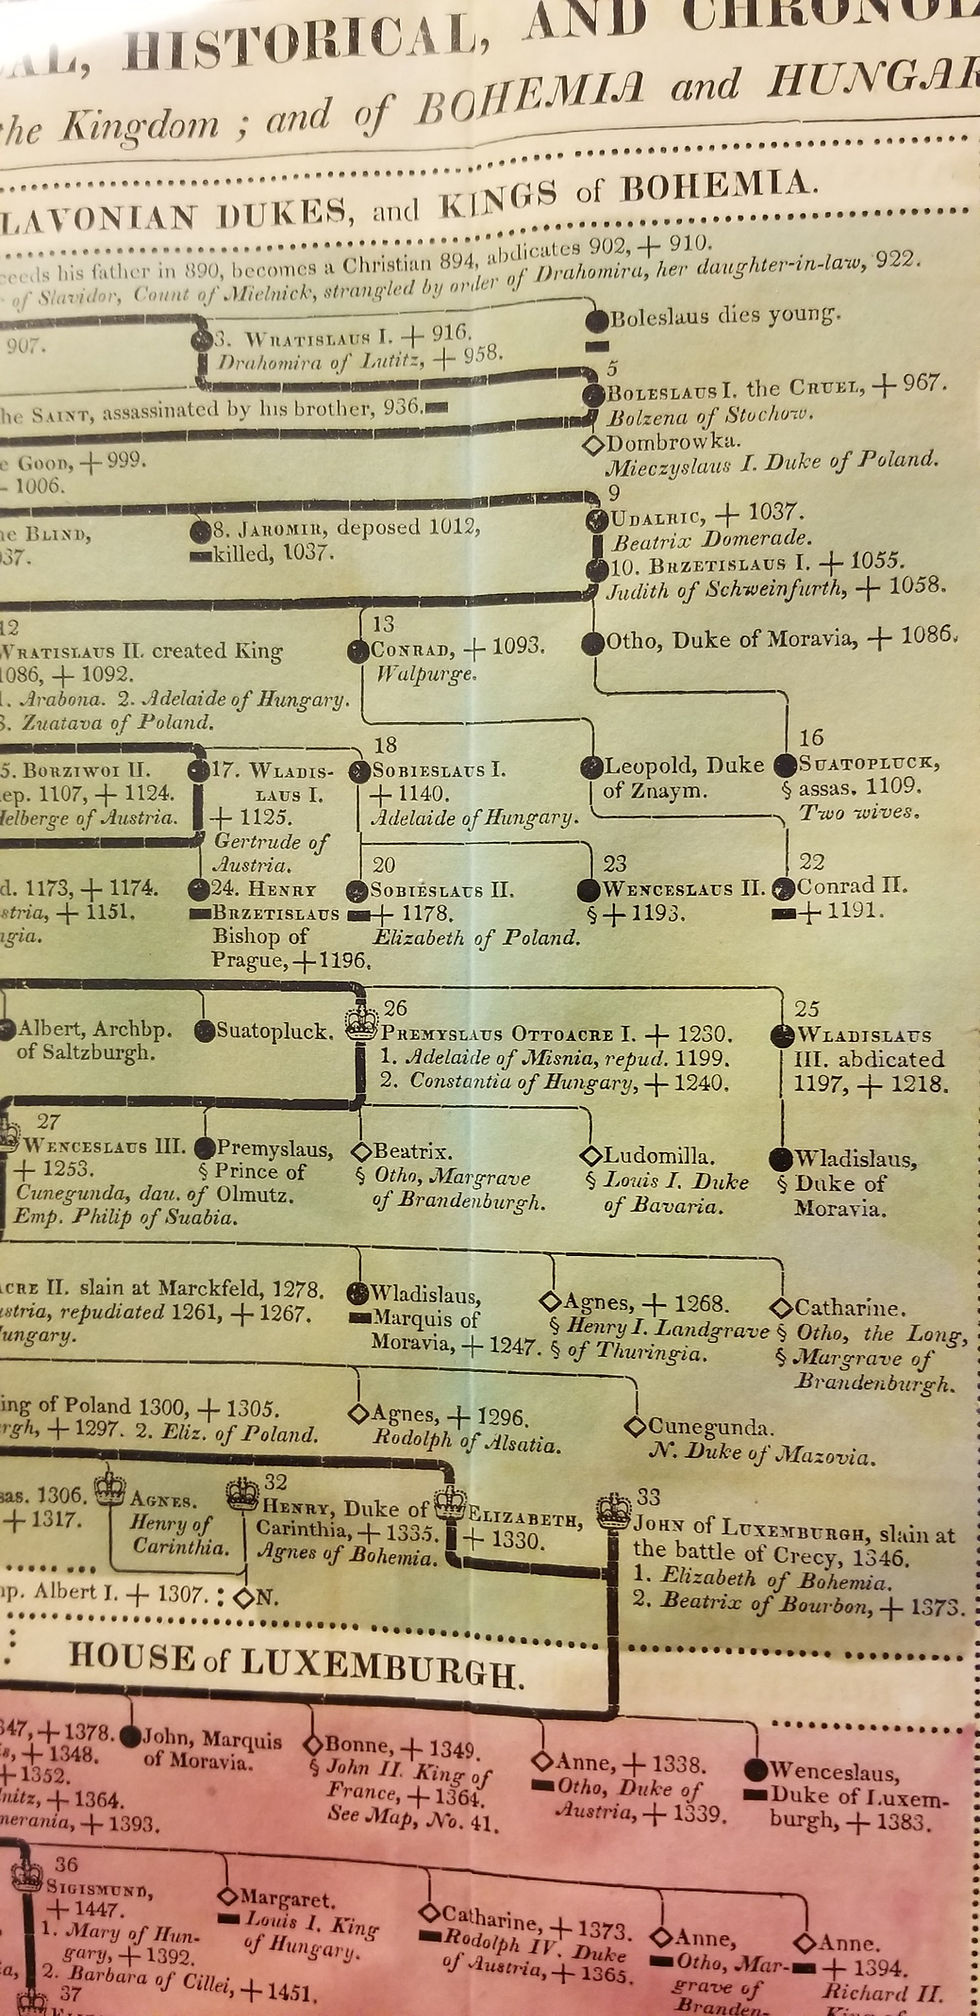 HISTORICAL, AND
the Kingdom ; and of BOHEMIA and
DUKES, and KINGS of BOHEMIA.
his father in 890, becomes a Christian 894, abdicates 902, + 910.
of Slavidor, Count of Mielnick, strangled by order of Drahomira, her daughter-in-law, 922.
Boleslaus dies young.
907.
3. WRATISLAUS I. + 916.
Drahomira of Lutitz, + 958.
5
BOLESLAUS I. the CRUEL, + 967.
Bolzena of Stochow.
SAINT, assassinated by his brother, 936.
Dombrowka.
Mieczyslaus I. Duke of Poland.
GOOD, + 999.
1006.
9
UDALRIC, + 1037.
Beatrix Domerade.
BLIND,
8. JAROMIR, deposed 1012,
killed, 1037.
10. BRZETISLAUS I. + 1055.
Judith of Schweinfurth, + 1058.
12
WRATISLAUS II. created King
1086, + 1092.
1. Arabona. 2. Adelaide of Hungary.
3. Zuatava of Poland.
13
CONRAD, + 1093.
Walpurge.
Otho, Duke of Moravia, + 1086.
BORZIWOI II.
1107, + 1124.
of Austria.
17. WLADIS-
LAUS I.
+ 1125.
Gertrude of
Austria.
18
SOBIESLAUS I.
+ 1140.
Adelaide of Hungary.
Leopold, Duke
of Znaym.
16
SUATOPLUCK,
§ assas. 1109.
Two wives.
1173, + 1174.
+ 1151.
24. HENRY
BRZETISLAUS
Bishop of
Prague, + 1196.
20
SOBIESLAUS II.
+ 1178.
Elizabeth of Poland.
23
WENCESLAUS II.
§ + 1193.
22
Conrad II.
+ 1191.
Albert, Archbp.
of Saltzburgh.
Suatopluck.
26
PREMYSLAUS OTTOACRE I. + 1230.
1. Adelaide of Misnia, repud. 1199.
2. Constantia of Hungary, + 1240.
25
WLADISLAUS
III. abdicated
1197, + 1218.
27
WENCESLAUS III.
+ 1253.
Cunegunda, dau. of
Emp. Philip of Suabia.
Premyslaus,
§ Prince of
Olmutz.
Beatrix.
§ Otho, Margrave
of Brandenburgh.
Ludomilla.
§ Louis I. Duke
of Bavaria.
Wladislaus,
§ Duke of
Moravia.
II. slain at Marckfeld, 1278.
repudiated 1261, + 1267.
Wladislaus,
Marquis of
Moravia, + 1247.
Agnes, + 1268.
§ Henry I. Landgrave
§ of Thuringia.
Catharine.
§ Otho, the Long,
§ Margrave of
Brandenburgh.
of Poland 1300, + 1305.
+ 1297. 2. Eliz. of Poland.
Agnes, + 1296.
Rodolph of Alsatia.
Cunegunda.
N. Duke of Mazovia.
1306.
+ 1317.
AGNES.
Henry of
Carinthia.
32
HENRY, Duke of
Carinthia, + 1335.
Agnes of Bohemia.
ELIZABETH,
+ 1330.
33
JOHN of LUXEMBURGH, slain at
the battle of Crecy, 1346.
1. Elizabeth of Bohemia.
2. Beatrix of Bourbon, + 1373.
Albert I. + 1307. :
N.
HOUSE of LUXEMBURGH.
+ 1378.
+ 1348.
+ 1352.
+ 1364.
+ 1393.
John, Marquis
of Moravia.
Bonne, + 1349.
§ John II. King of
France, + 1364.
See Map, No. 41.
Anne, + 1338.
Otho, Duke of
Austria, + 1339.
Wenceslaus,
Duke of Luxem-
burgh, + 1383.
36
SIGISMUND,
+ 1447.
1. Mary of Hun-
gary, + 1392.
2. Barbara of Cillei, + 1451.
37
Margaret.
Louis I. King
of Hungary.
Catharine, + 1373.
Rodolph IV. Duke
of Austria, + 1365.
Anne,
Otho, Mar-
grave of
Branden-
Anne.
+ 1394.
Richard II.